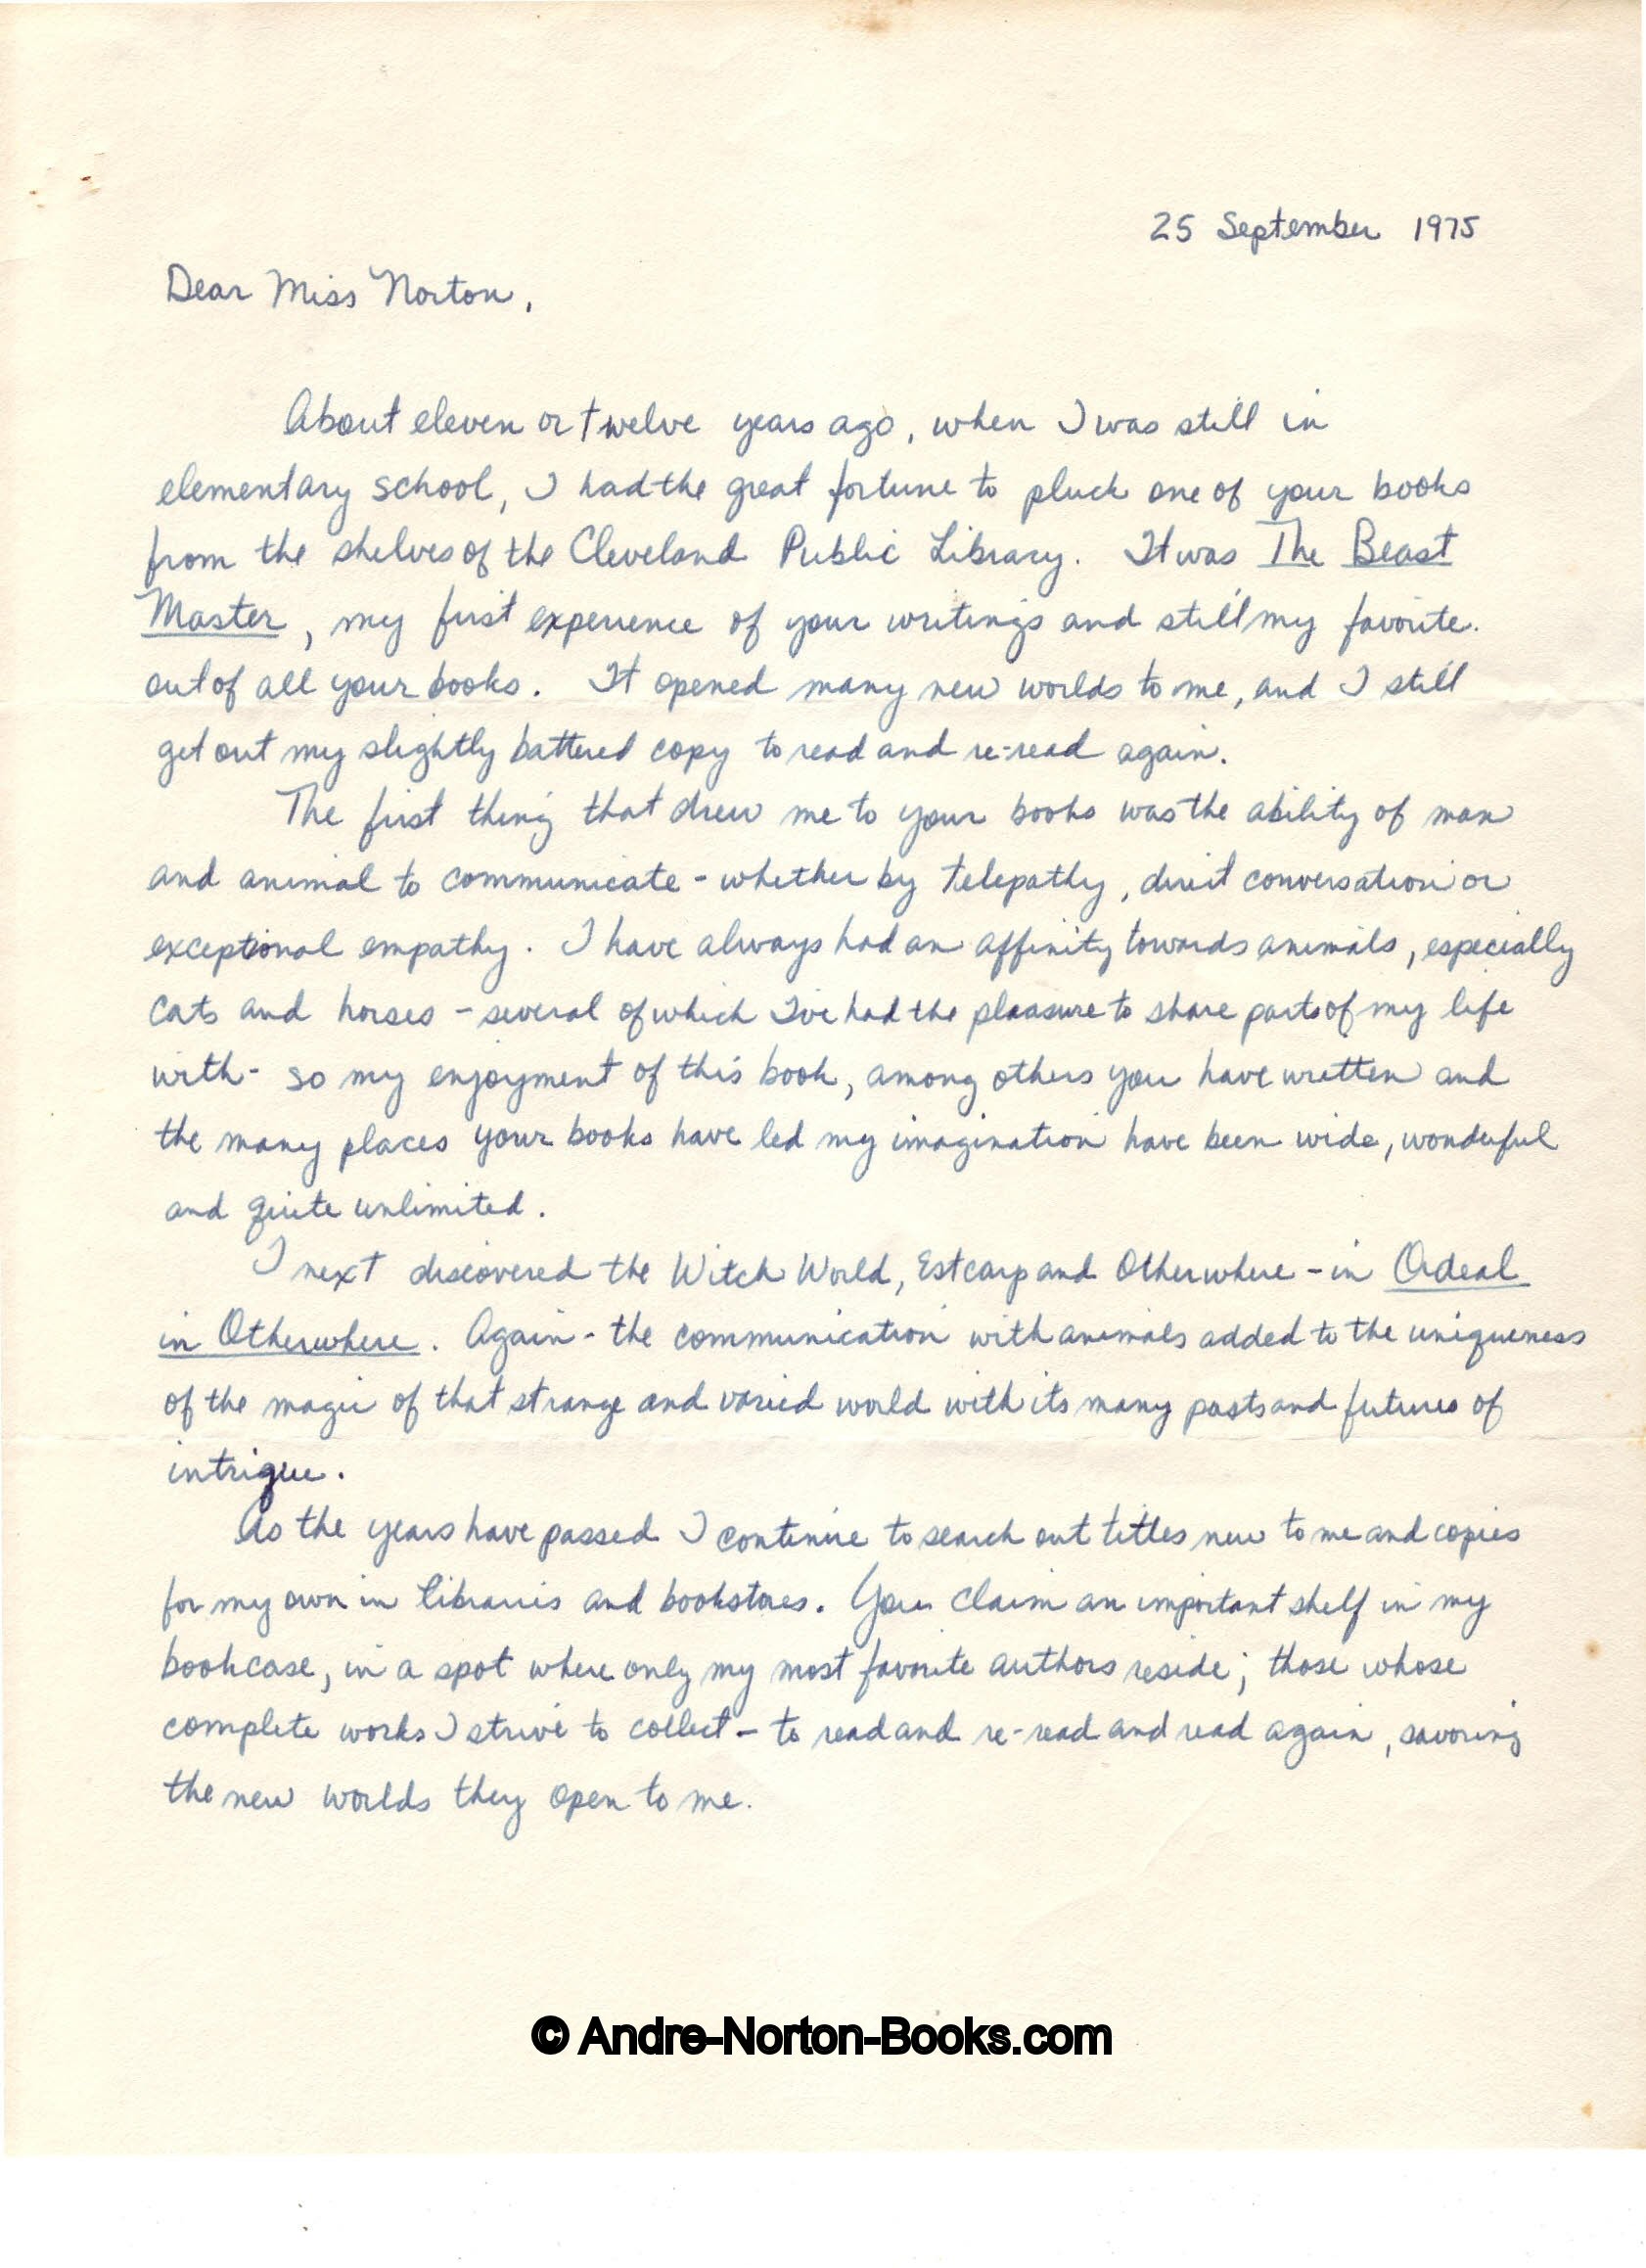 25 September 1975
Dear Miss Norton,
About eleven or twelve years ago, when I was still in
elementary school, I had the great fortune to pluck one of your books
from the shelves of the Cleveland Public Library. It was The Beast
Master, my first experience of your writings and still my favorite
out of all your books. It opened many new worlds to me, and I still
get out my slightly battered copy to read and re-read again.
The first thing that drew me to your books was the ability of man
and animal to communicate - whether by telepathy, direct conversation or
exceptional empathy. I have always had an affinity towards animals, especially
cats and horses - several of which I've had the pleasure to share parts of my life
with - so my enjoyment of this book, among others you have written and
the many places your books have led my imagination have been wide, wonderful
and quite unlimited.
I next discovered the Witch World, Estcarp and Otherwhere - in Ordeal
in Otherwhere. Again - the communication with animals added to the uniqueness
of the magic of that strange and varied world with its many pasts and futures of
intrigue.
As the years have passed I continue to search out titles new to me and copies
for my own in libraries and bookstores. You claim an important shelf in my
bookcase, in a spot where only my most favorite authors reside; those whose
complete works I strive to collect - to read and re-read and read again, savoring
the new worlds they open to me.
© Andre-Norton-Books.com